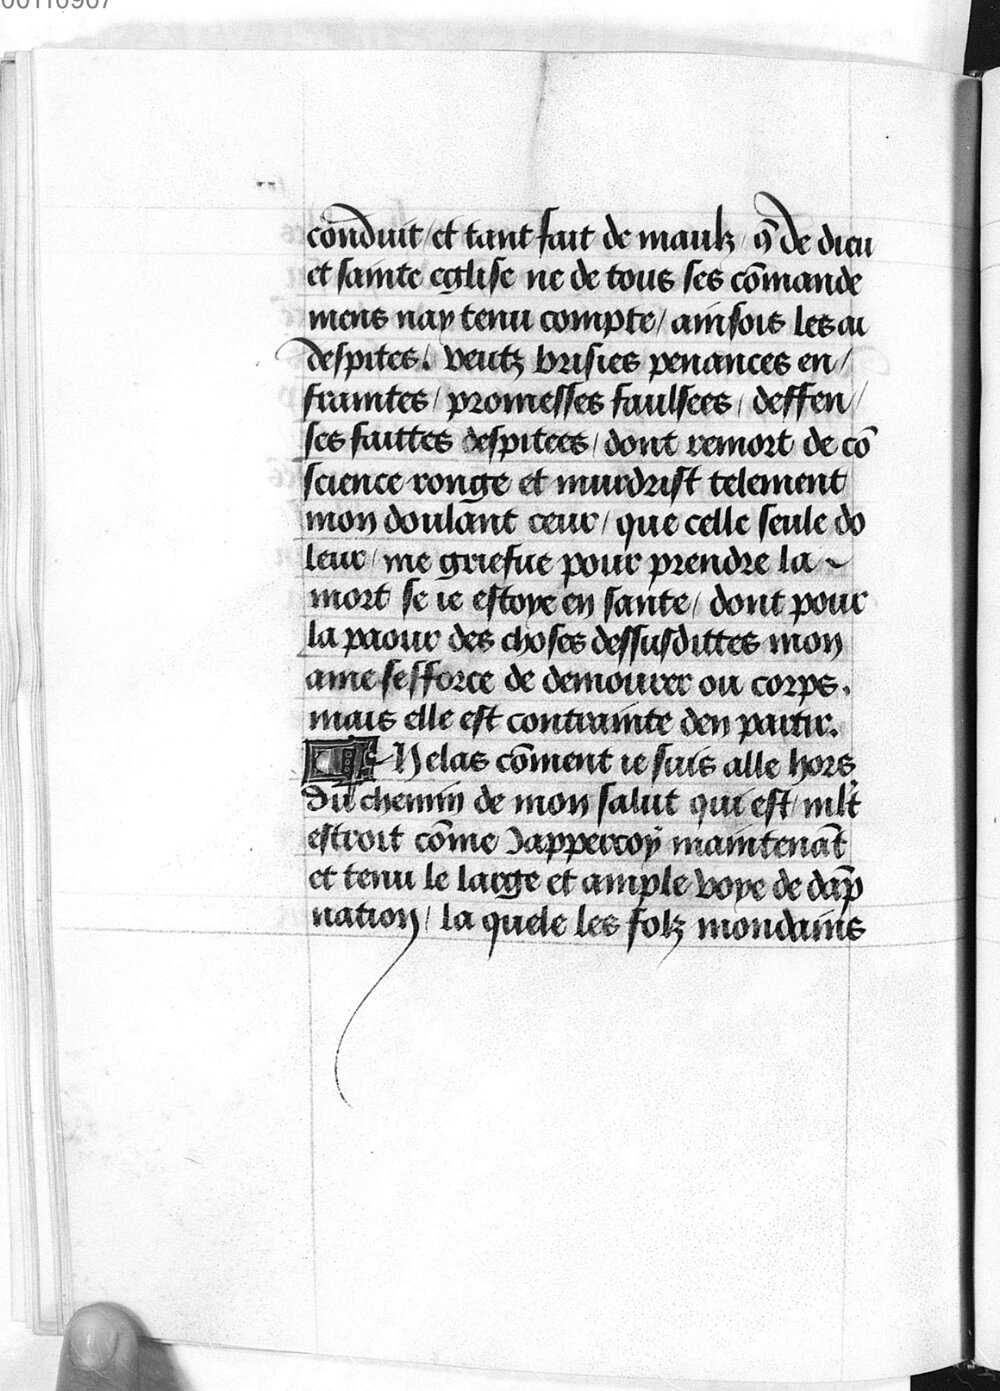 00110907
conduit / et tant fait de maulx / q̄ de dieu
et sainte eglise ne de tous ses cōmande
mens nay tenu compte / ainsois les ai
despites. veutz brisies penances en /
fraintes / promesses faulsees / deffen /
ses faittes despitees / dont remort de cō
science ronge et murdrist telement
mon doulant ceur / que celle seule do
leur / me griefue pour prendre la ~
mort se ie estoye en sante / dont pour
la paour des choses dessusdittes mon
ame sefforce de demourer ou corps.
mais elle est contrainte den partir.
Helas cōment ie suis alle hors
du chemin de mon salut qui est / mlt
estroit cōme Jappercoy maintenāt
et tenu le large et ample voye de dāp
nation / la quele les folz mondains